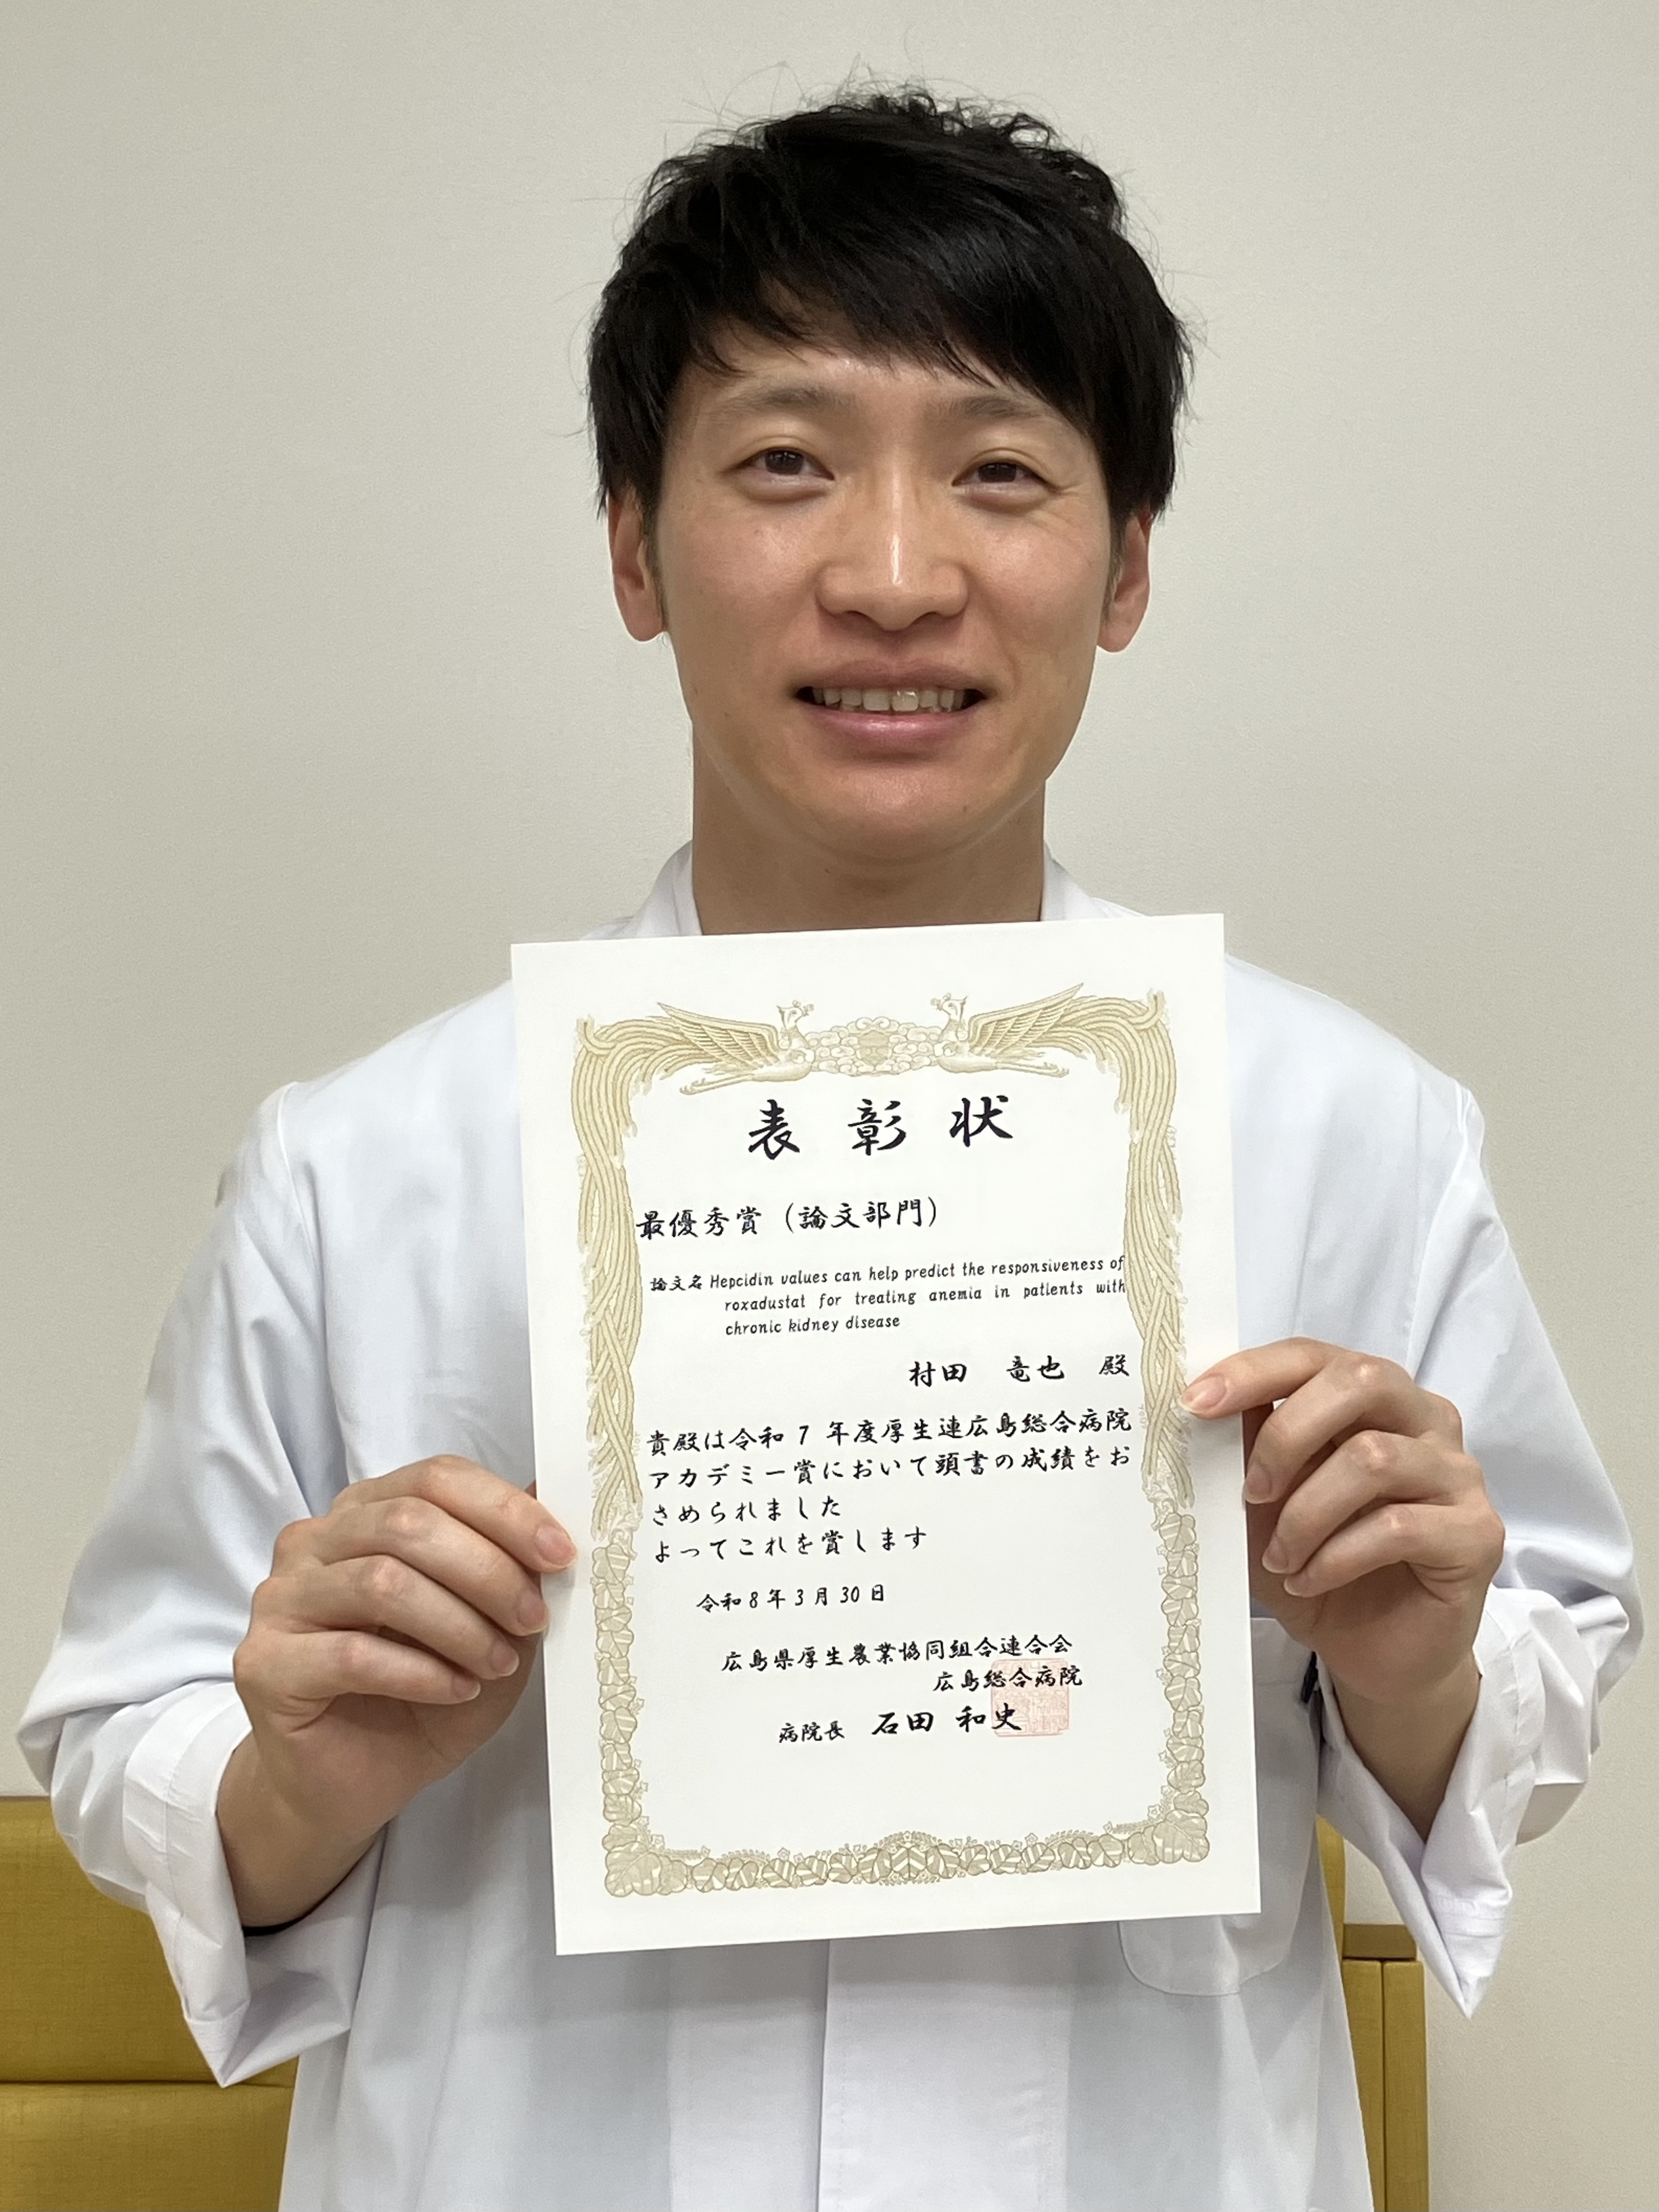 表彰状
最優秀賞（論文部門）
論文名 Hepcidin values can help predict the responsiveness of
roxadustat for treating anemia in patients with
chronic kidney disease
村田 竜也 殿
貴殿は令和7年度厚生連広島総合病院
アカデミー賞において頭書の成績をお
さめられました
よってこれを賞します
令和8年3月30日
広島県厚生農業協同組合連合会
広島総合病院
病院長 石田 和史